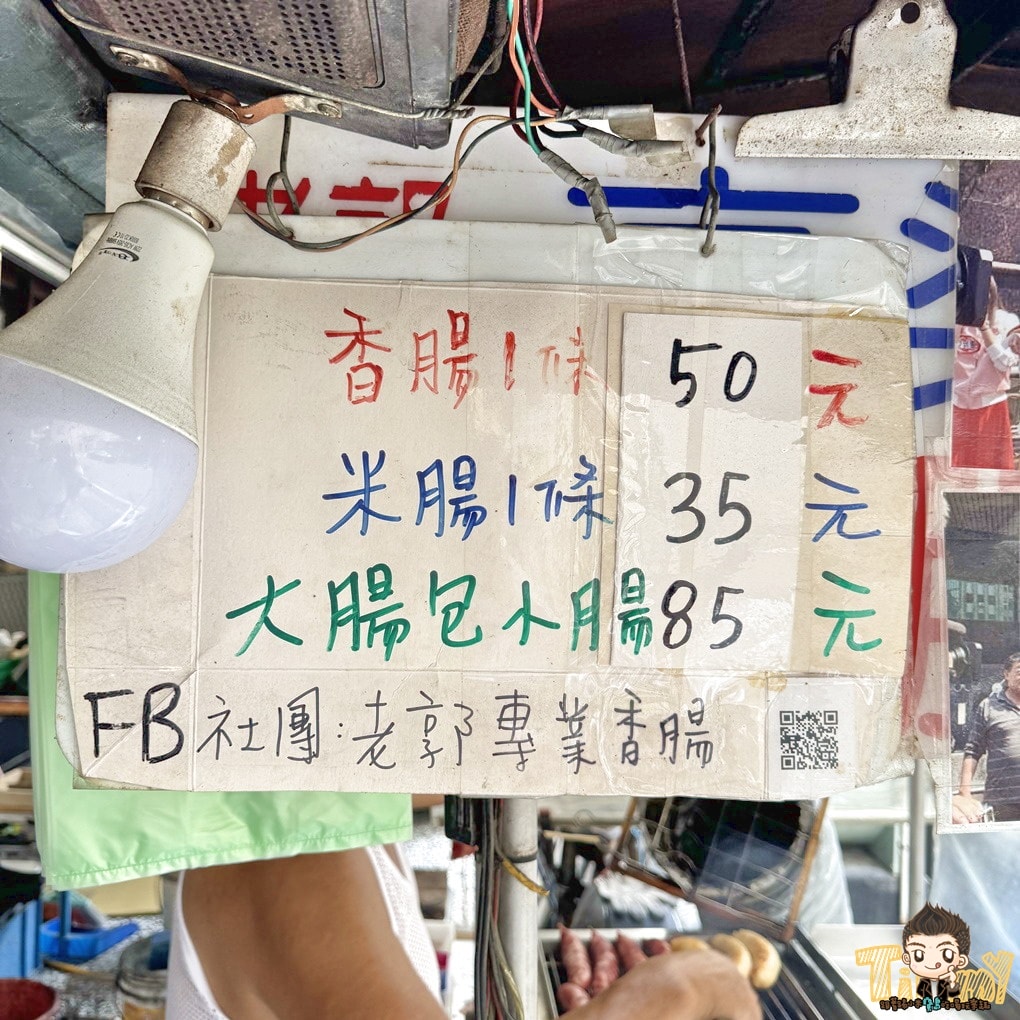 香腸1條 50元
米腸1條 35元
大腸包小腸 85元
FB社團:老郭專業香腸
Timmy